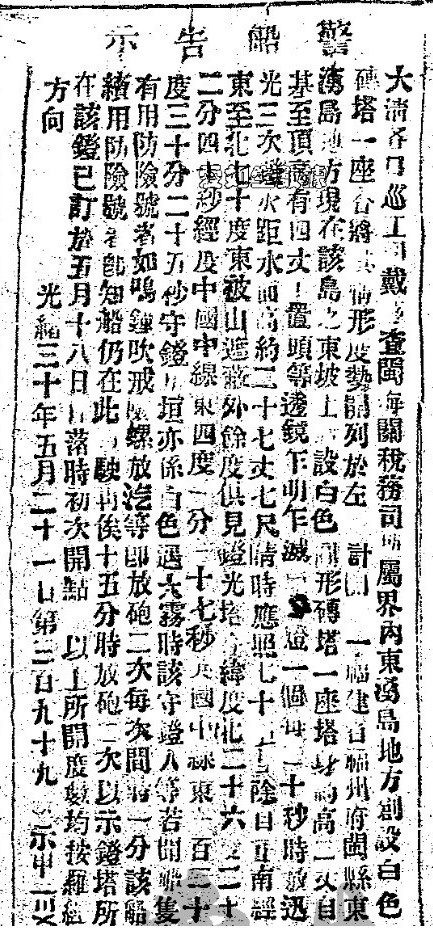 警船告示
大清各口巡工司戴 查閩海關稅務司所屬界內東湧島地方創設白色
磚塔一座合將其情形度勢開列於左 計開 一福建省福州府閩縣東
湧島地方現在該島之東坡上 設白色圓形磚塔一座塔身約高二丈自
基至頂高有四丈 置頭等透鏡乍明乍滅 燈一個每二十秒時放迅
光三次燈火距水面高約二十七丈七尺晴時應照七十 除自正南經
東至北七十度東被山遮蔽外餘度俱見鐙光塔 緯度北二十六 二十
二分四 秒經度中國中線東四度 分 十七秒英國中線東一百二十
度三十分二十五秒守鐙 垣亦係白色遇大霧時該守鐙人等若聞船隻
有用防險號者如鳴鐘吹戒 螺放汽等即放砲二次每次間時一分該船
續用防險號者 知船仍在此 駛再俟十五分時放砲二次以示鐙塔所
在該鐙已訂於五月十八日日落時初次開點 以上所開度數均按羅經
方向
光緒三十年五月二十一日第三百九十九 示